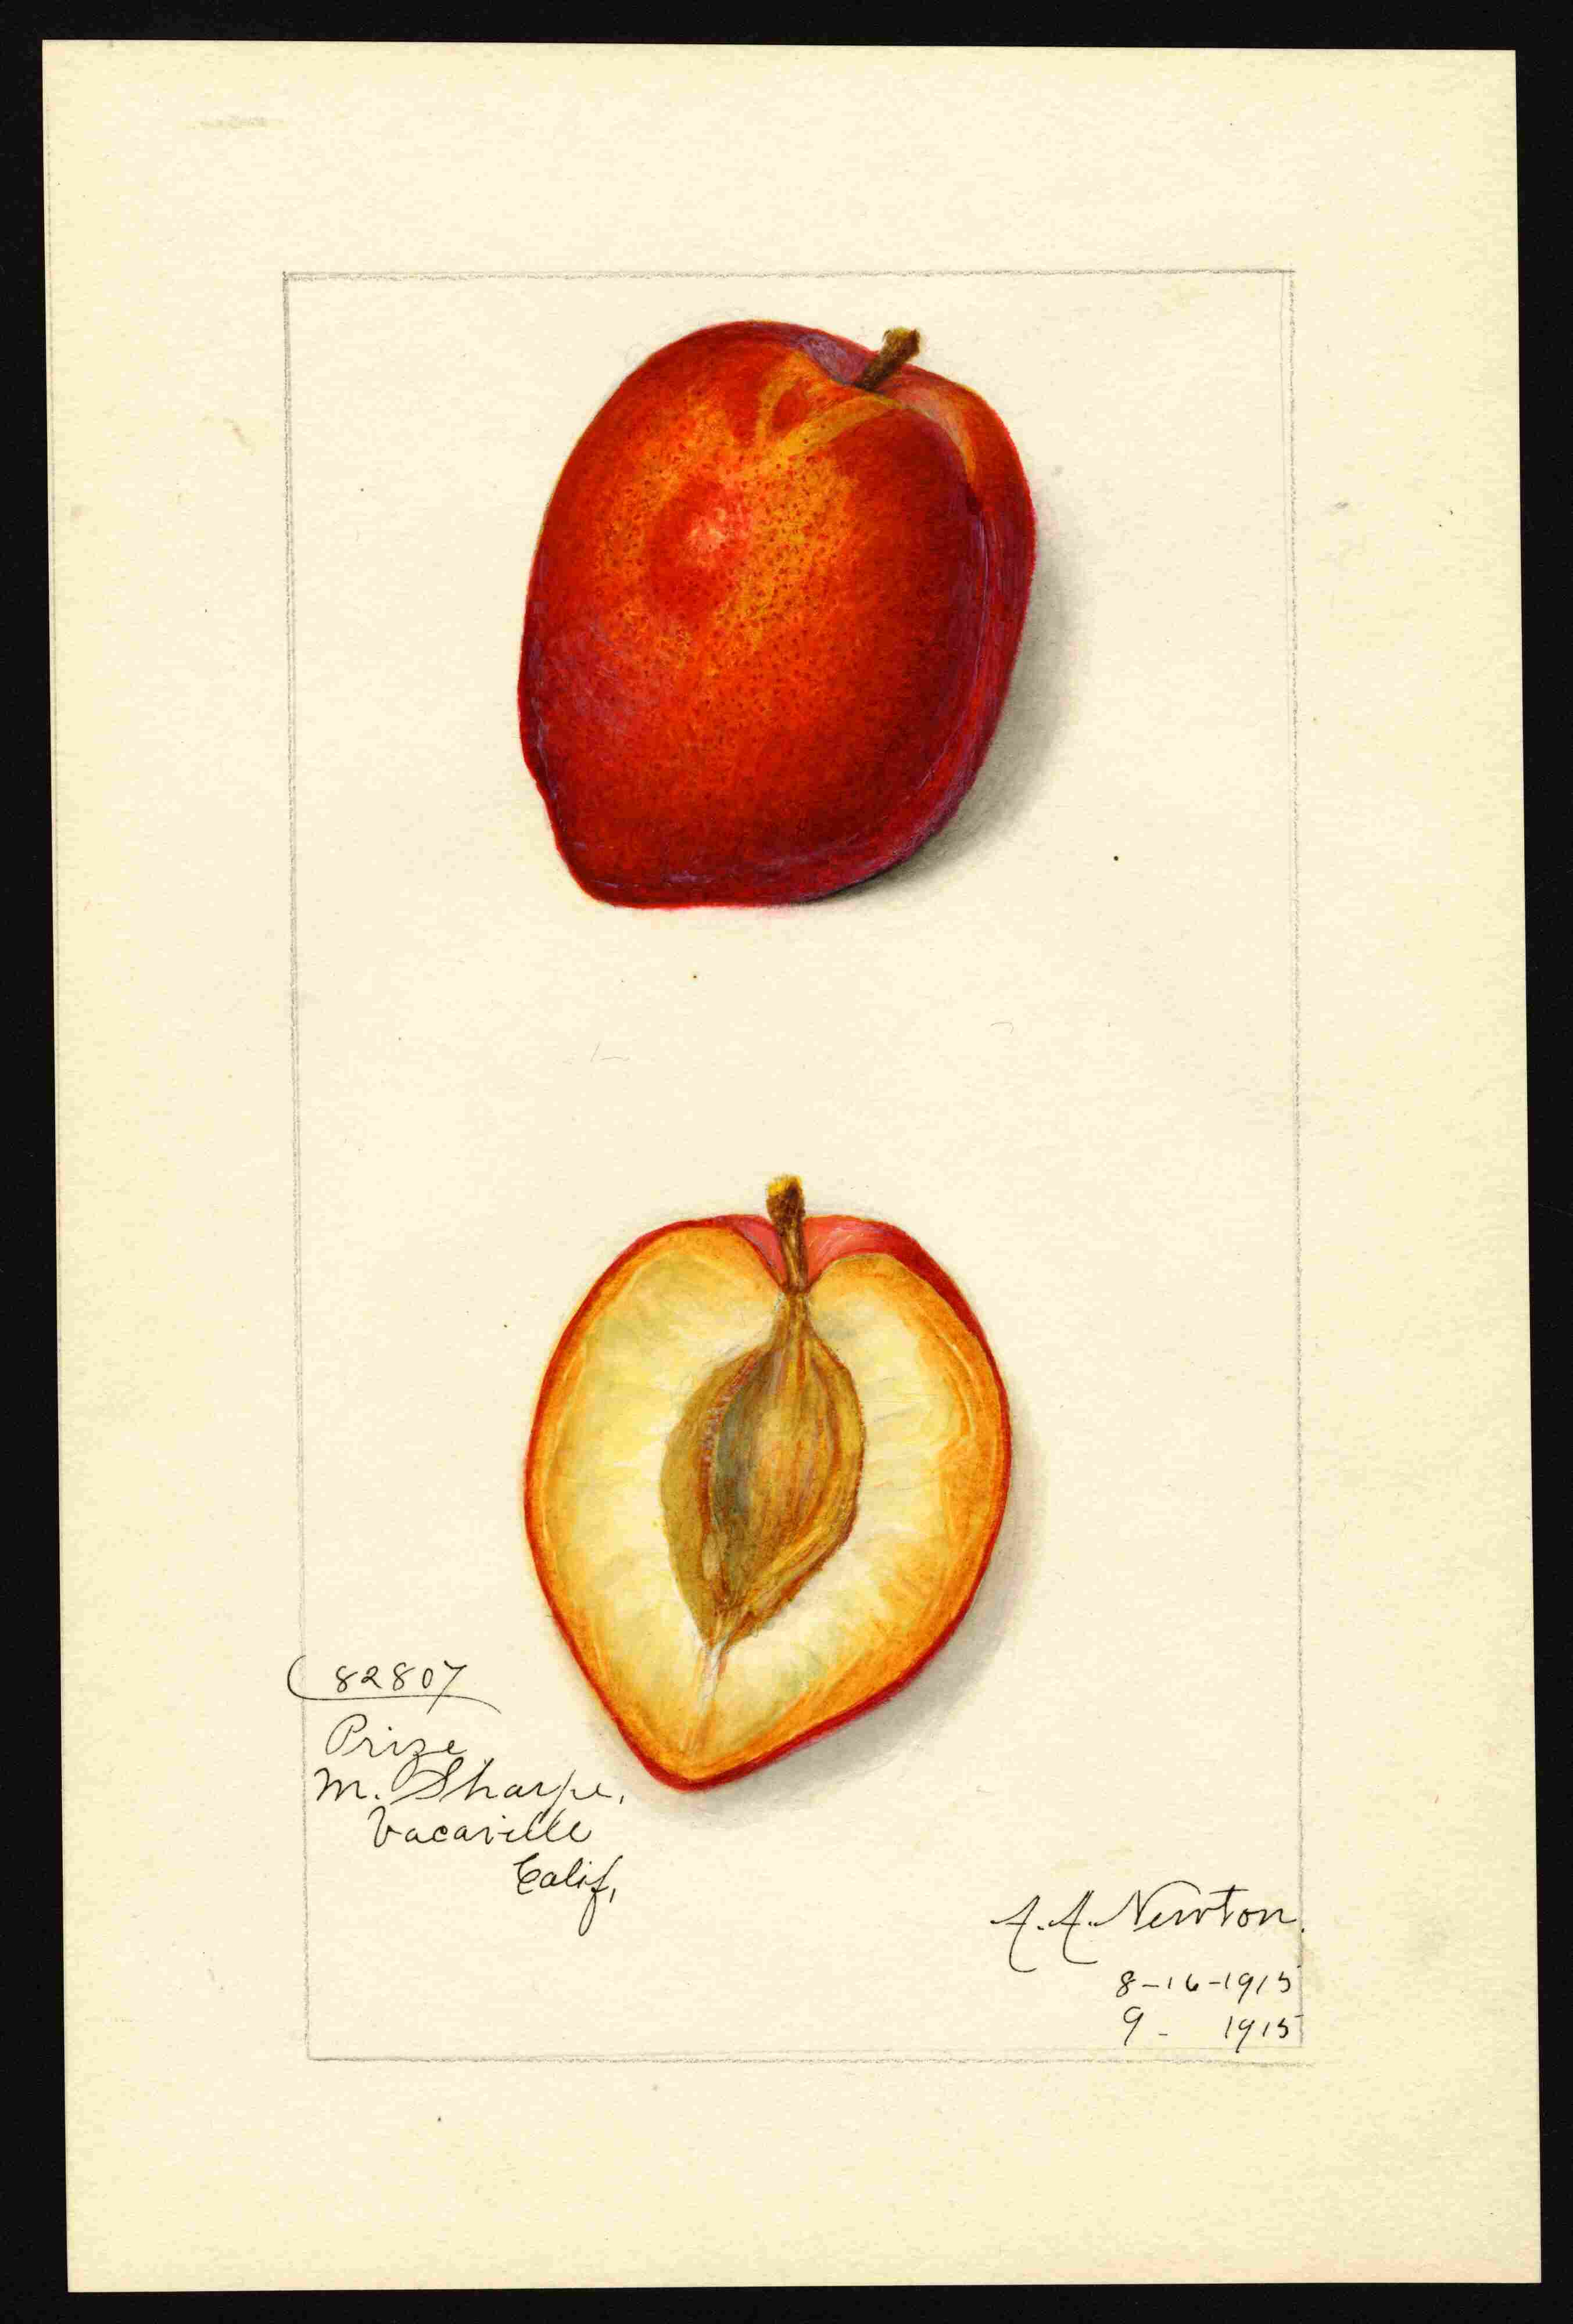 82807
Prize
M. Sharpe,
Vacaville
Calif,
A.A. Newton.
8-16-1915
9- 1915